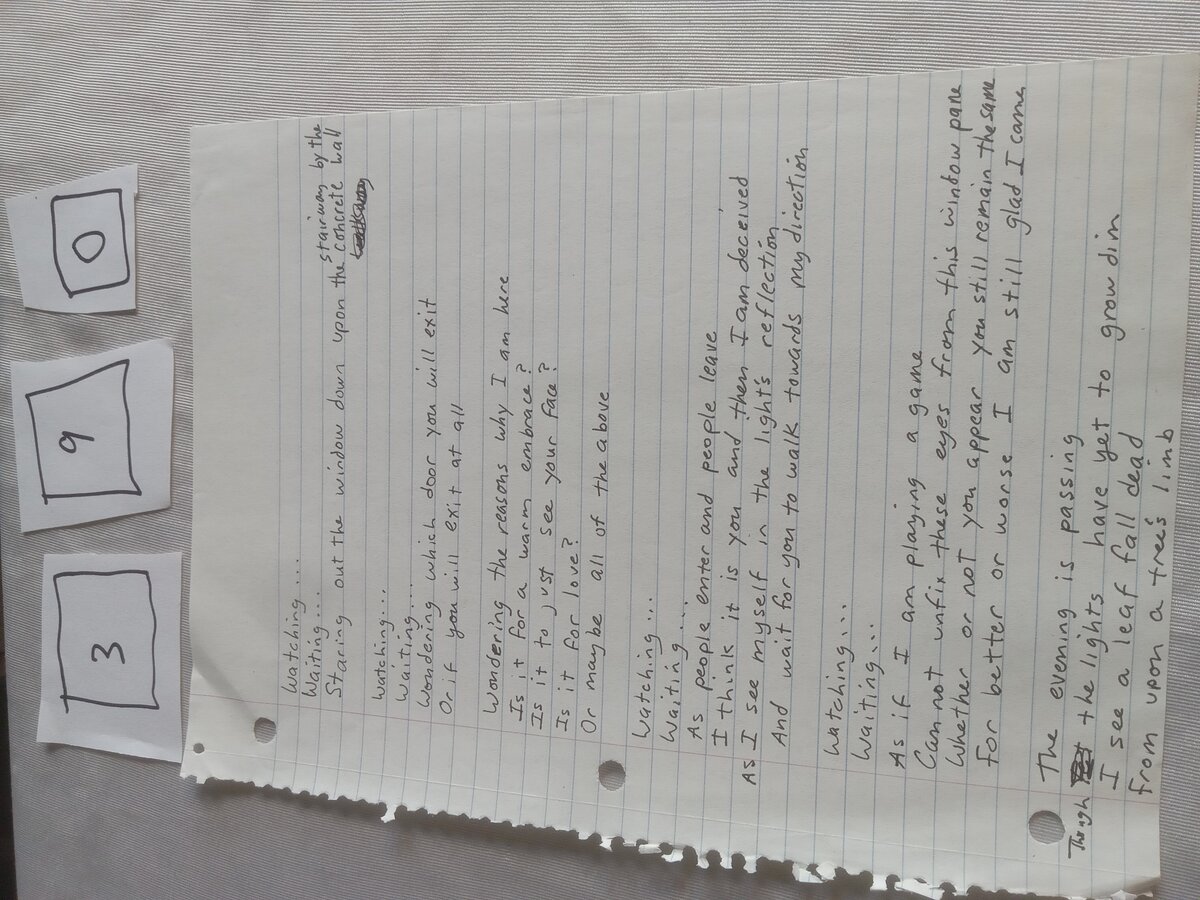 3 9 0
Watching....
Waiting....
Staring out the window down upon the concrete wall
stairway by the
Watching...
Waiting....
Wondering which door you will exit
Or if you will exit at all
Wondering the reasons why I am here
Is it for a warm embrace?
Is it to just see your face?
Is it for love?
Or maybe all of the above
Watching...
Waiting....
As people enter and people leave
I think it is you and then I am deceived
As I see myself in the light's reflection
And wait for you to walk towards my direction
Watching...
Waiting...
As if I am playing a game
Cannot unfix these eyes from this window pane
Whether or not you appear you still remain the same
for better or worse I am still glad I came
The evening is passing
Though the lights have yet to grow dim
I see a leaf fall dead
from upon a tree's limb